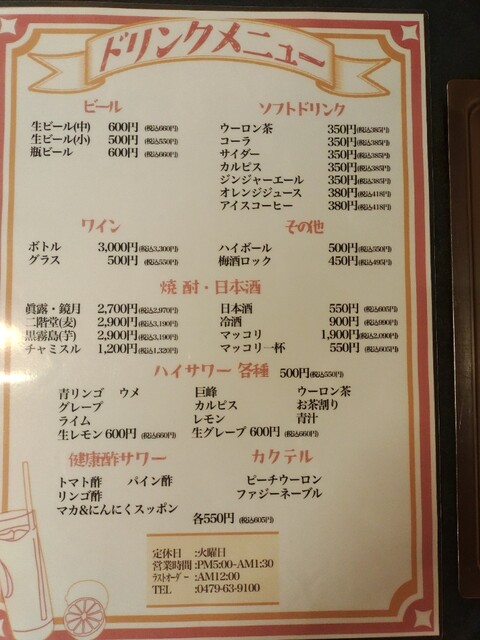 ドリンクメニュー
ビール
生ビール(中) 600円(税込660円)
生ビール(小) 500円(税込550円)
瓶ビール 600円(税込660円)
ソフトドリンク
ウーロン茶 350円(税込385円)
コーラ 350円(税込385円)
サイダー 350円(税込385円)
カルピス 350円(税込385円)
ジンジャーエール 350円(税込385円)
オレンジジュース 380円(税込418円)
アイスコーヒー 380円(税込418円)
ワイン
ボトル 3,000円(税込3,300円)
グラス 500円(税込550円)
その他
ハイボール 500円(税込550円)
梅酒ロック 450円(税込495円)
焼酎・日本酒
眞露・鏡月 2,700円(税込2,970円)
二階堂(麦) 2,900円(税込3,190円)
黒霧島(芋) 2,900円(税込3,190円)
チャミスル 1,200円(税込1,320円)
日本酒 550円(税込605円)
冷酒 900円(税込990円)
マッコリ 1,900円(税込2,090円)
マッコリ一杯 550円(税込605円)
ハイサワー 各種 500円(税込550円)
青リンゴ ウメ 巨峰 ウーロン茶
グレープ カルピス お茶割り
ライム レモン 青汁
生レモン 600円(税込660円) 生グレープ 600円(税込660円)
健康酢サワー
トマト酢 パイン酢
リンゴ酢
マカ&にんにくスッポン
カクテル
ピーチウーロン
ファジーネーブル
各550円(税込605円)
定休日 :火曜日
営業時間:PM5:00-AM1:30
ラストオーダー :AM12:00
TEL :0479-63-9100